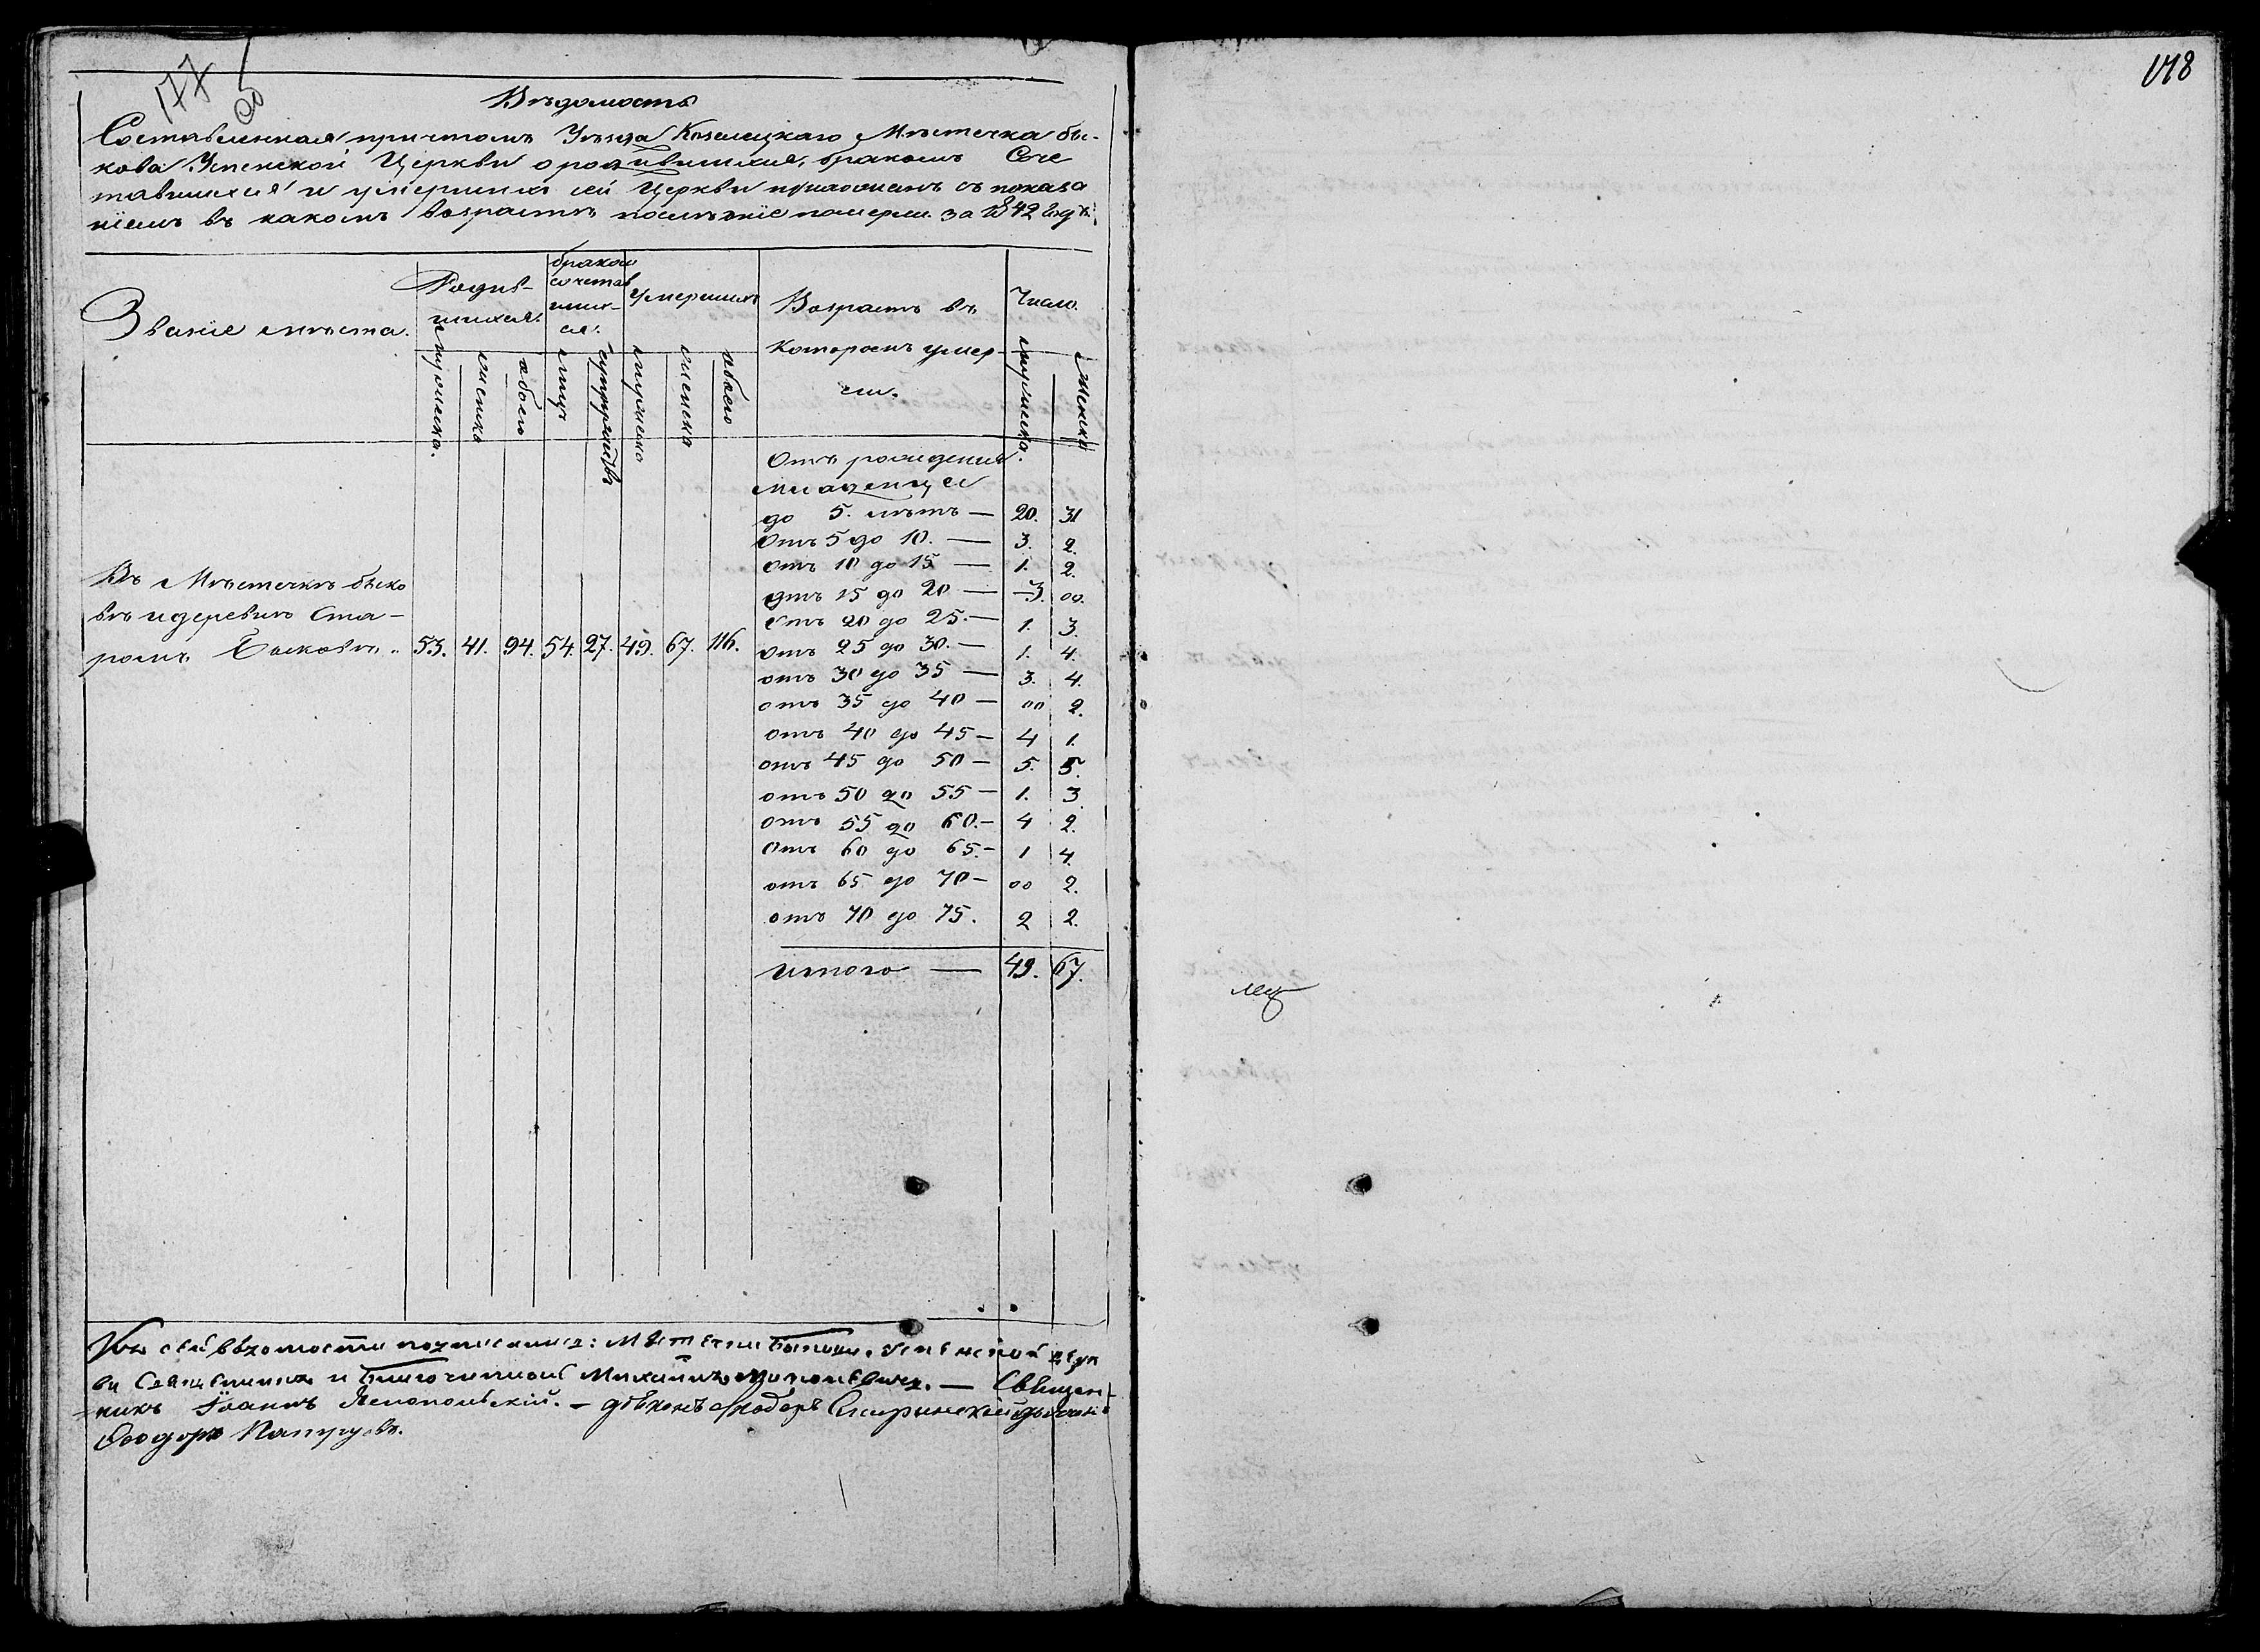 177
178
Вѣдомость
Составленная причтомъ Уѣзда Козелецкаго Мѣстечка бы-
кова Успенской Церкви о родившихся, бракомъ Соче
тавшихся и умершихъ сей Церкви прихожанъ съ показа
ніемъ въ какомъ возрастѣ послѣдніе померли за 1842 годъ.
Званіе мѣста.
Родив-
шихся.
бракосо
сочетав
ших-
ся.
Умершихъ
Возрастъ въ
Которомъ умер-
ли.
Число.
мужеска.
женска
обоего
лицъ
супружествъ
мужеска
женска
обоего
мужеска.
Женска
Отъ рожденія
младенцы
до 5. лѣтъ — 20. 31
Отъ 5 до 10. — 3. 2.
отъ 10 до 15 — 1. 2.
отъ 15 до 20 — 3. 00.
отъ 20 до 25. — 1. 3.
Въ Мѣстечкѣ быко
вѣ и деревнѣ Ста-
ромъ Быковѣ. 53. 41. 94. 54. 27. 49. 67. 116.
отъ 25 до 30. — 1. 4.
отъ 30 до 35 — 3. 4.
отъ 35 до 40 — 00 2.
отъ 40 до 45 — 4 1.
отъ 45 до 50 — 5. 5.
отъ 50 до 55 — 1. 3.
отъ 55 до 60. — 4 2.
отъ 60 до 65. — 1 4.
отъ 65 до 70 — 00 2.
отъ 70 до 75. 2 2.
итого — 49. 67.
сей вѣдомости подписались: Мѣстечка Быкова, Успенской Церк
ви Священникъ и Благочинный Михаилъ — Священ-
никъ Іоаннъ Яснопольскій. — дьяконъ
Ѳеодоръ